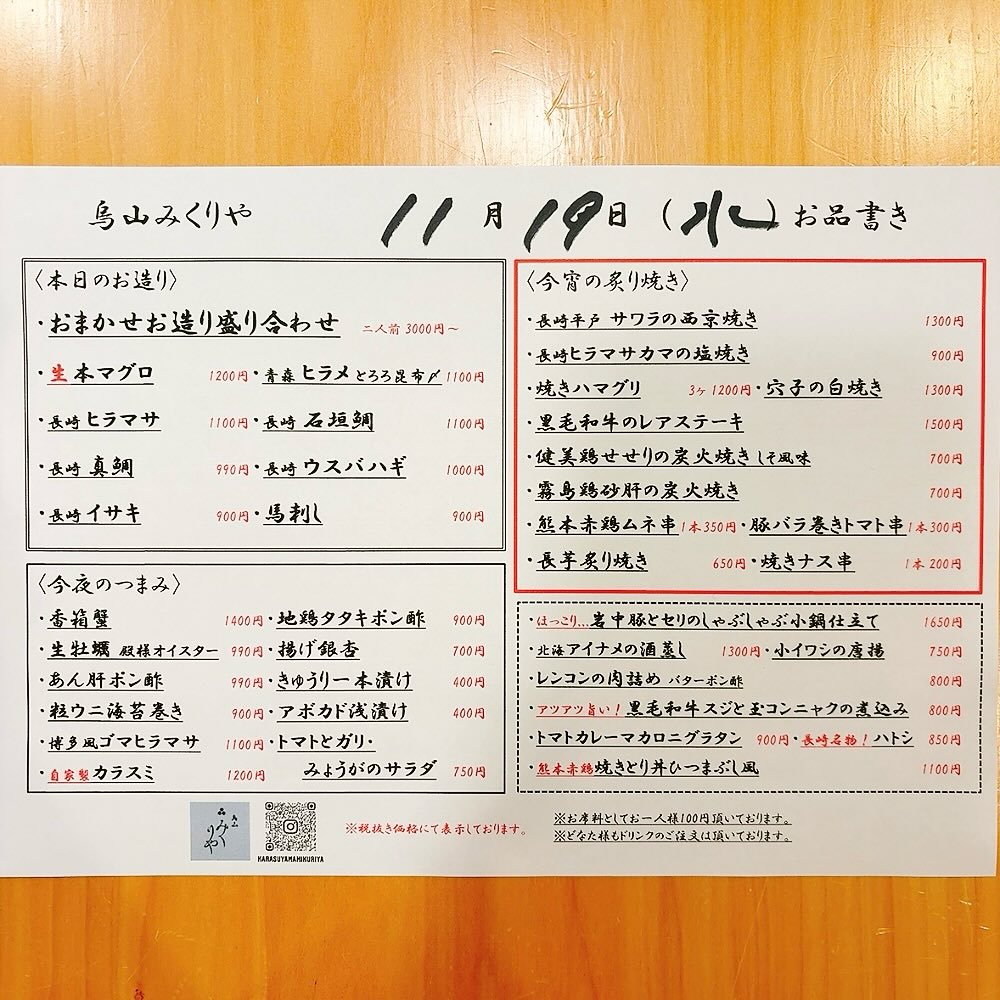 烏山みくりや 11月19日(水)お品書き
〈本日のお造り〉
・おまかせお造り盛り合わせ 二人前 3000円〜
・生本マグロ 1200円・青森 ヒラメ とろろ昆布〆 1100円
・長崎 ヒラマサ 1100円・長崎 石垣鯛 1100円
・長崎 真鯛 990円・長崎 ウスバハギ 1000円
・長崎 イサキ 900円・馬刺し 900円
〈今夜のつまみ〉
・香箱蟹 1400円・地鶏タタキポン酢 900円
・生牡蠣 殿様オイスター 990円・揚げ銀杏 700円
・あん肝ポン酢 990円・きゅうり一本漬け 400円
・粒ウニ海苔巻き 900円・アボカド浅漬け 400円
・博多風ゴマヒラマサ 1100円・トマトとガリ・
・自家製カラスミ 1200円 みょうがのサラダ 750円
〈今宵の炙り焼き〉
・長崎平戸 サワラの西京焼き 1300円
・長崎ヒラマサカマの塩焼き 900円
・焼きハマグリ 3ヶ 1200円・穴子の白焼き 1300円
・黒毛和牛のレアステーキ 1500円
・健美鶏せせりの炭火焼き しそ風味 700円
・霧島鶏砂肝の炭火焼き 700円
・熊本赤鶏ムネ串 1本350円・豚バラ巻きトマト串 1本300円
・長芋炙り焼き 650円・焼きナス串 1本 200円
・ほっこり…岩中豚とセリのしゃぶしゃぶ小鍋仕立て 1650円
・北海アイナメの酒蒸し 1300円・小イワシの唐揚 750円
・レンコンの肉詰め バターポン酢 800円
・アツアツ旨い!黒毛和牛スジと玉コンニャクの煮込み 800円
・トマトカレーマカロニグラタン 900円・長崎名物!ハトシ 850円
・熊本赤鶏焼きとり丼ひつまぶし風 1100円
烏山
みくりや
KARASUYAMAMIKURIYA
※税抜き価格にて表示しております。
※お席料としてお一人様100円頂いております。
※どなた様もドリンクのご注文は頂いております。